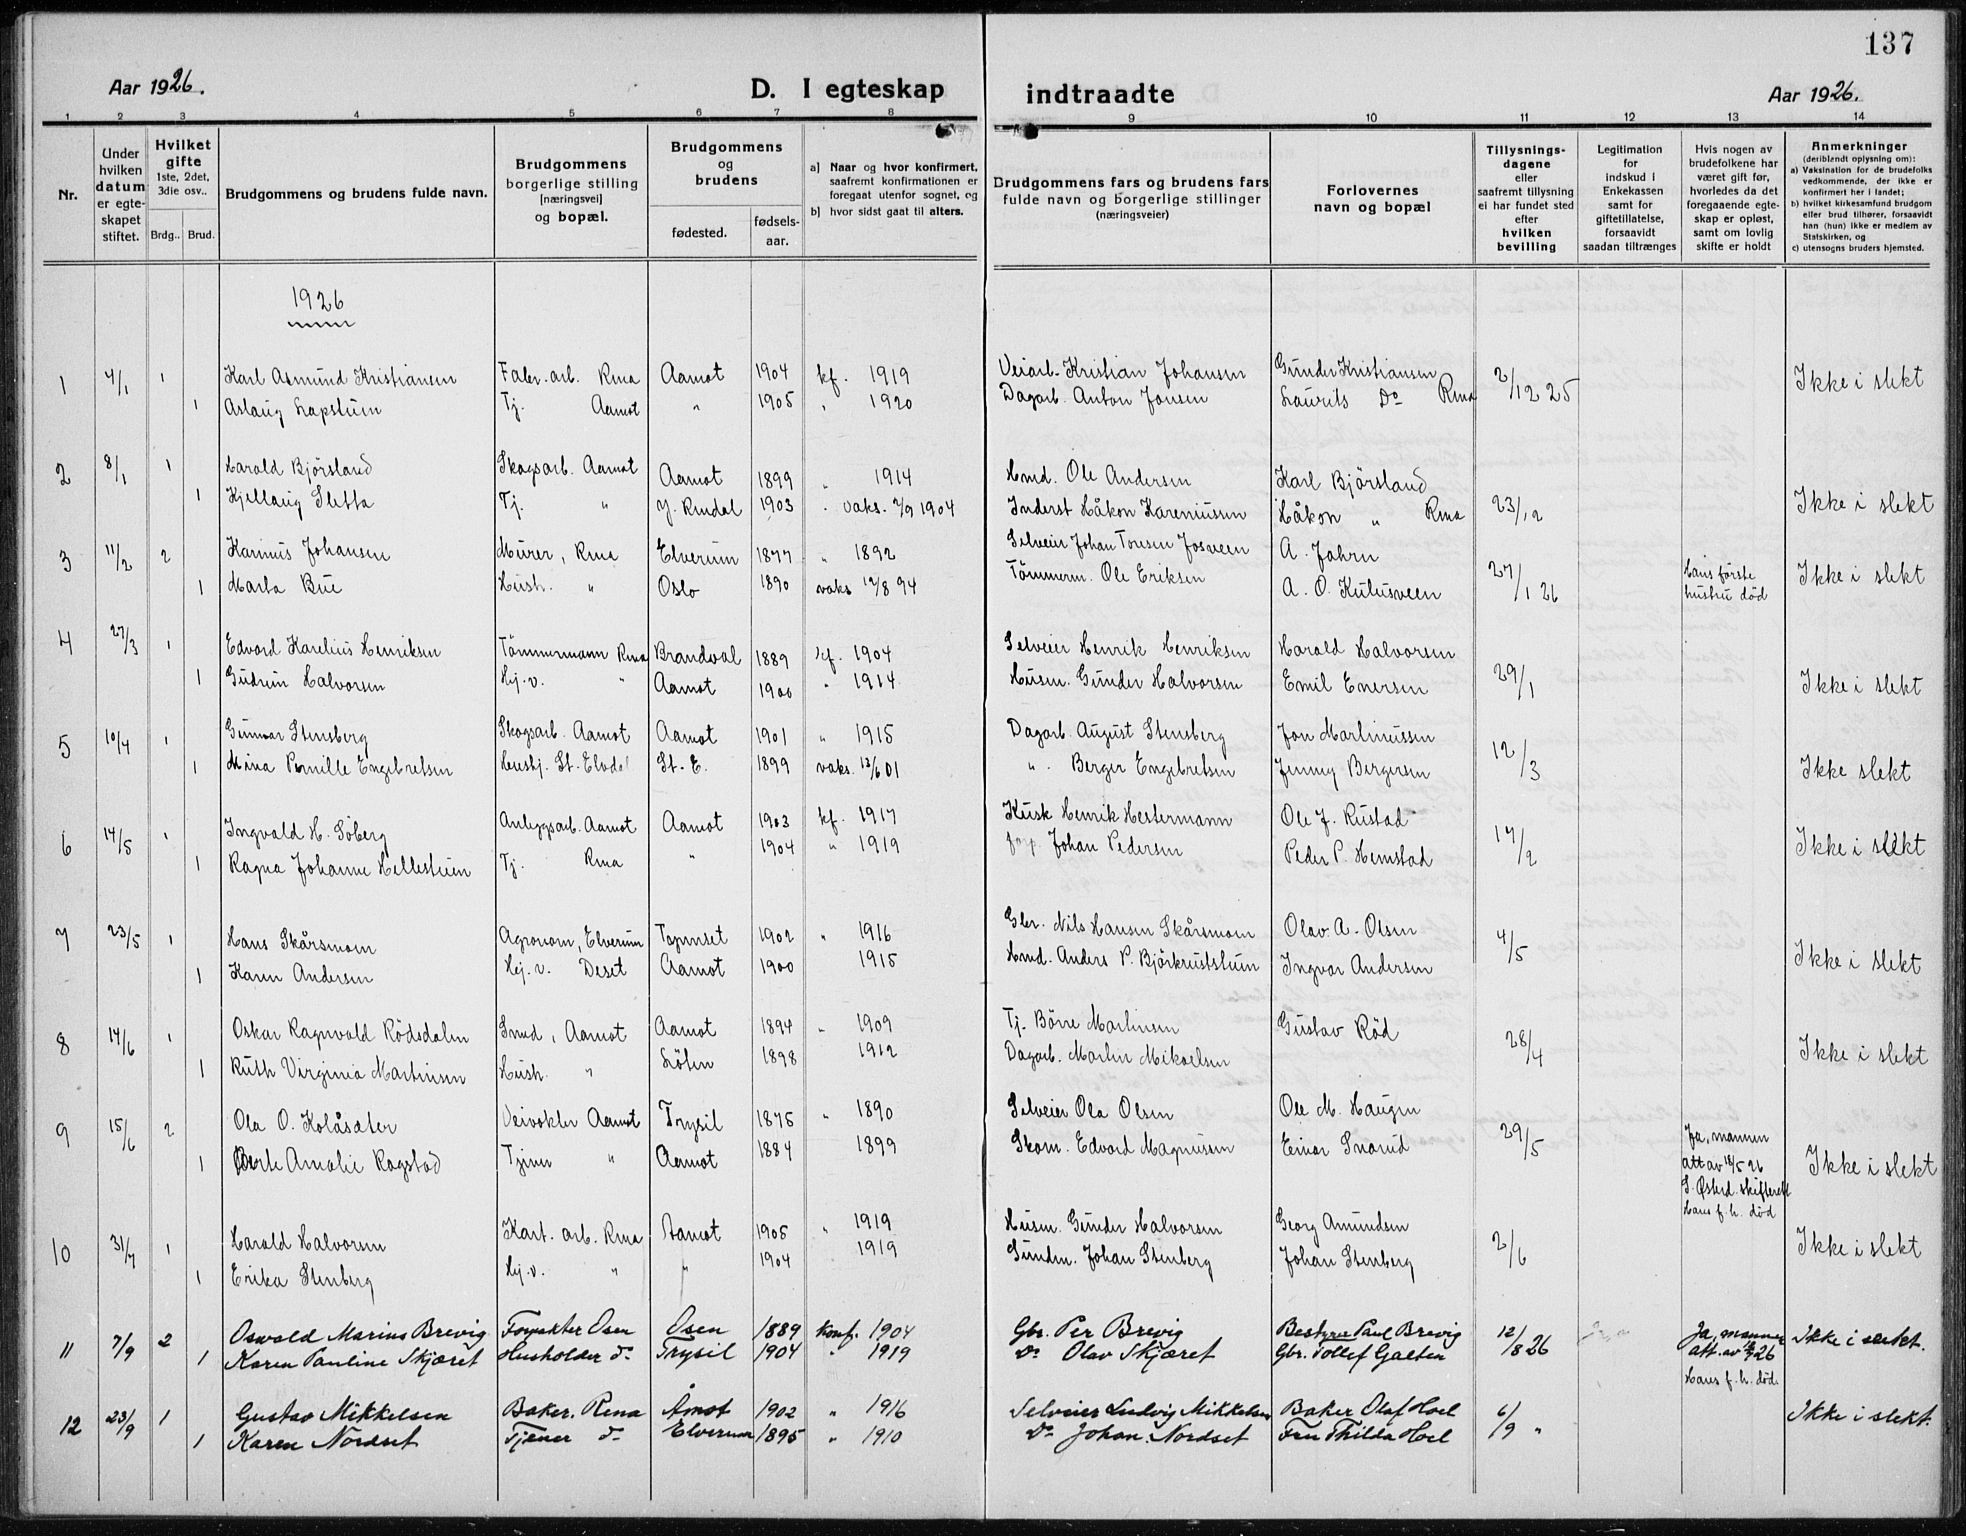 137
Aar 1926.
D. I egteskap indtraadte
Aar 1926.
1 2 3 4 5 6 7 8 9 10 11 12 13 14
Nr.
Under hvilken datum er egteskapet stiftet.
Hvilket gifte 1ste, 2det, 3die osv..
Brdg.. Brud.
Brudgommens og brudens fulde navn.
Brudgommens borgerlige stilling [næringsvei] og bopæl.
Brudgommens og brudens
fødested. fødsels-aar.
a) Naar og hvor konfirmert, saafremt konfirmationen er foregaat utenfor sognet, og
b) hvor sidst gaat til alters.
Brudgommens fars og brudens fars fulde navn og borgerlige stillinger (næringsveier)
Forlovernes navn og bopæl
Tillysnings-dagene eller saafremt tillysning ei har fundet sted efter hvilken bevilling
Legitimation for indskud i Enkekassen samt for giftetillatelse, forsaavidt saadan tiltrænges
Hvis nogen av brudefolkene har været gift før, hvorledes da det foregaaende egte-skap er opløst, samt om lovlig skifte er holdt
Anmerkninger (deriblendt oplysning om): a) Vaksination for de brudefolks vedkommende, der ikke er konfirmert her i landet; b) hvilket kirkesamfund brudgom eller brud tilhører, forsaavidt han (hun) ikke er medlem av Statskirken, og c) utensogns bruders hjemsted.
1926
1 4/1 1 Karl Asmund Kristiansen Fabr. arb. Rena Aamot 1904 kf. 1919 Veiarb. Kristian Johansen Gunder Kristiansen 2/12 25 Ikke i slekt
1 Aslaug Lapstuen Tj. Aamot " 1905 " 1920 Dagarb. Anton Jonsen Laurits Do Rena
2 8/1 1 Harald Bjørsland Skogsarb. Aamot Aamot 1899 " 1914 Hmd. Ole Andersen Karl Bjørsland 23/12 Ikke i slekt
1 Kjellaug Sletta Tj. " Y. Rendal 1903 vaks. 2/9 1904 Inderst Håkon Kareniussen Håkon " Rena
3 11/2 2 Karinus Johansen Murer, Rena Elverum 1877 " 1892 Selveier Johan Tonsen Josveen A. Jahrn 27/1 26 Hans første hustru død Ikke i slekt
1 Marta Bue Hush. " Oslo 1890 vaks 12/8 94 Tömmerm. Ole Eriksen A. O. Kulusveen
4 27/3 1 Edvard Karelius Henriksen Tömmermann Rena Brandval 1889 kf. 1904 Selveier Henrik Henriksen Harald Halvorsen 29/1 Ikke i slekt
1 Gudrun Halvorsen Hj. v. " Aamot 1900 " 1914 Husm. Gunder Halvorsen Emil Enersen
5 10/4 1 Gunnar Stensberg Skogsarb. Aamot Aamot 1901 " 1915 Dagarb. August Stensberg Jon Martinussen 12/3 Ikke slekt
1 Mina Pernille Engebretsen Hushj. St. Elvdal St. E. 1899 vaks. 13/6 01 " Berger Engebretsen Jenny Bergersen
6 14/5 1 Ingvald H. Søberg Anleggsarb. Aamot Aamot 1903 kf. 1917 Kusk Henrik Hestermann Ole J. Rustad 17/2 Ikke i slekt
1 Ragna Johanne Hellestuen Tj. Rena " 1904 " 1919 Johan Pedersen Peder P. Hemstad
7 23/5 1 Hans Skårsmoen Agronom, Elverum 1902 " 1916 Gbr. Nils Hansen Skårsmoen Olav A. Olsen 4/5 Ikke i slekt
1 Karen Andersen Hj. v. Deset Aamot 1900 1915 Hmd. Anders P. Björkrustshuen Ingvar Andersen
8 14/6 1 Oskar Ragnvald Rödsdalen Smed, Aamot Aamot 1894 " 1909 Tj. Börre Martinsen Gustav Röd 28/4 Ikke i slekt
1 Ruth Virginia Martinsen Hush. " Löten 1898 1912 Dagarb. Martin Mikaelsen
9 15/6 2 Ola O. Kolåsæter Veivokter Aamot Trysil 1875 " 1890 Selveier Ola Olsen Ole M. Haugen 29/5 Ja, mannen att av 18/5 26 S. Østerd. skifterett Hans f. h. død Ikke i slekt
1 Berte Amalie Rogstad Tjener " Aamot 1884 1899 Skom. Edvard Magnussen Einar Snarud
10 31/7 1 Harald Halvorsen Kart. arb. Rena Aamot 1905 " 1919 Husm. Gunder Halvorsen Georg Amundsen 2/6 Ikke i slekt
1 Erika Stenberg Hj. v. " " 1904 1919 Johan Stenberg Johan Stenberg
11 7/9 2 Oswald Marius Brevig Forvakter Osen Osen 1889 konf. 1904 Gbr. Per Brevig Bestyrer Paul Brevig 12/8 26 Ja, mannen att. av 26 Hans f. h. død. Ikke i slekt.
1 Karen Pauline Skjæret Husholder do Trysil 1904 " 1919 Do Olav Skjæret Gbr. Tollef Galten
12 23/9 1 Gustav Mikkelsen Baker. Rena Åmot 1902 " 1916 Selveier Ludvig Mikkelsen Baker Olaf Hoel 6/9 " Ikke i slekt.
1 Karen Nordset Tjener do Elverum 1895 " 1910 Do Johan Nordset Fru Thilda Hoel